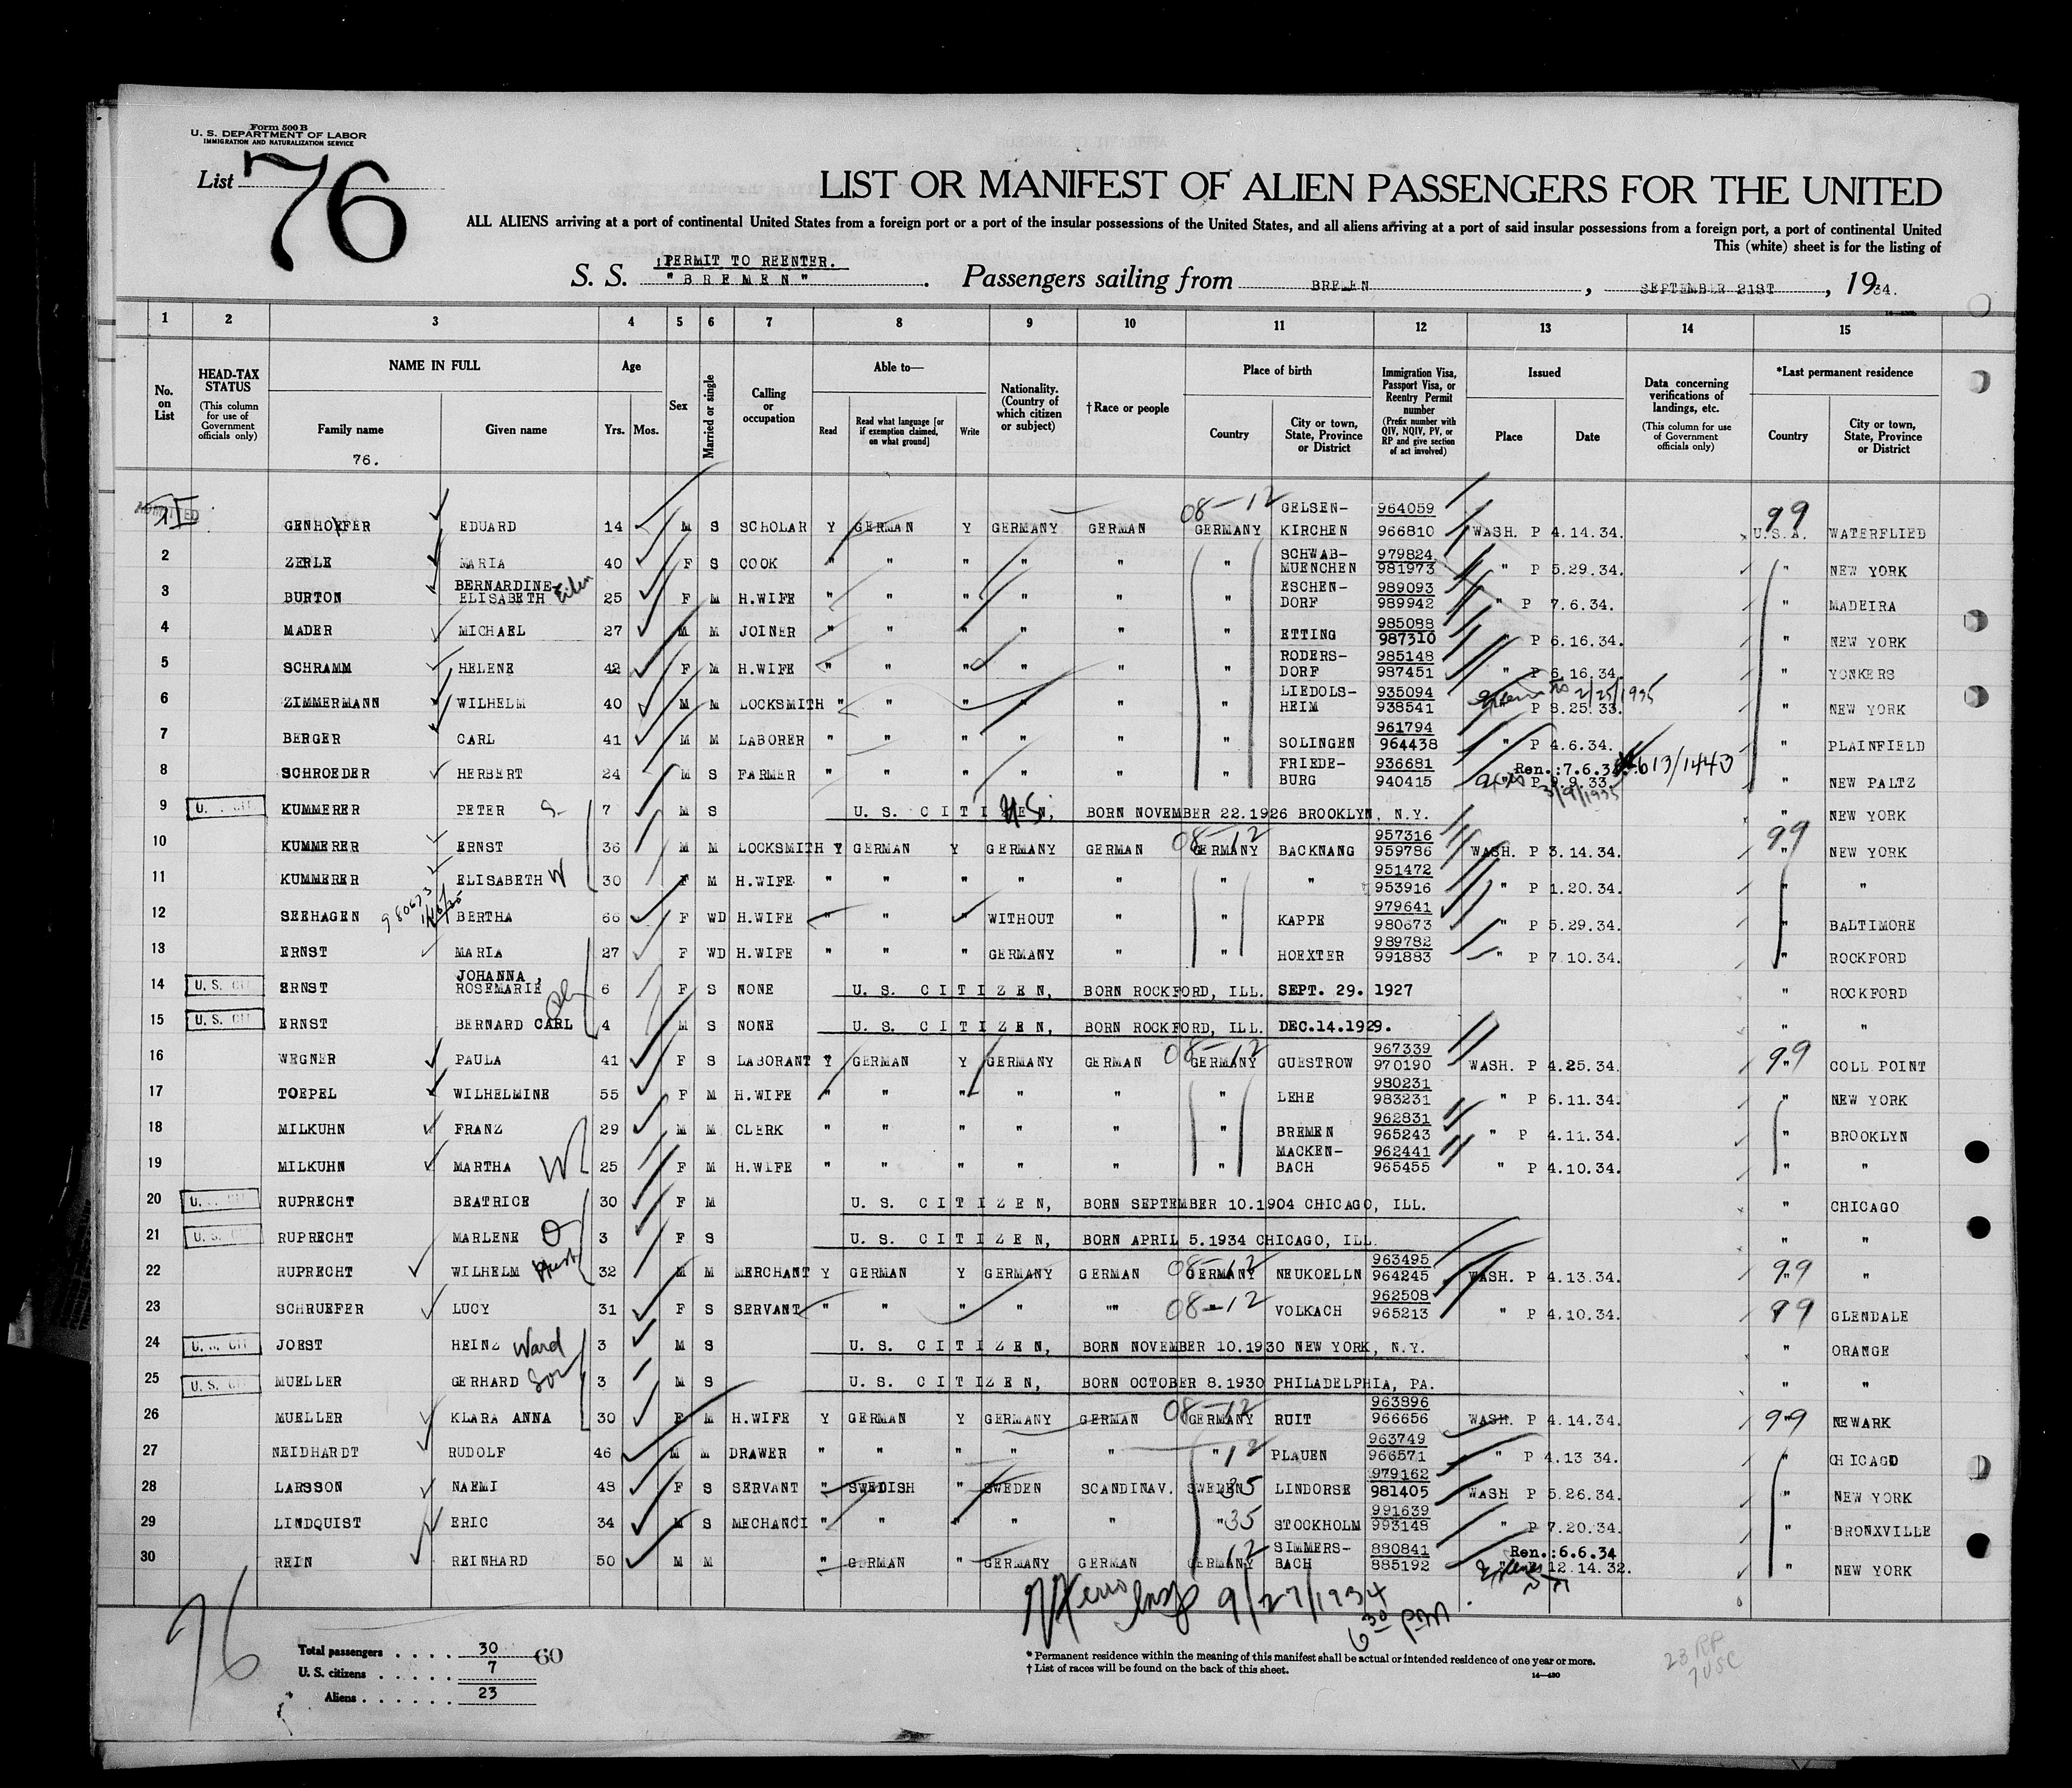 Form 500 B
U. S. DEPARTMENT OF LABOR
IMMIGRATION AND NATURALIZATION SERVICE
List 76
LIST OR MANIFEST OF ALIEN PASSENGERS FOR THE UNITED
ALL ALIENS arriving at a port of continental United States from a foreign port or a port of the insular possessions of the United States, and all aliens arriving at a port of said insular possessions from a foreign port, a port of continental United
This (white) sheet is for the listing of
PERMIT TO REENTER.
S. S. "BREMEN". Passengers sailing from BREMEN, SEPTEMBER 21ST, 1934.
1 2 3 4 5 6 7 8 9 10 11 12 13 14 15
No. on List
HEAD-TAX STATUS (This column for use of Government officials only)
NAME IN FULL
Family name
Given name
76.
Age
Yrs. Mos.
Sex
Married or single
Calling or occupation
Able to—
Read
Read what language [or if exemption claimed, on what ground]
Write
Nationality. (Country of which citizen or subject)
†Race or people
Place of birth
Country
City or town, State, Province or District
Immigration Visa, Passport Visa, or Reentry Permit number (Prefix number with QIV, NQIV, PV, or RP and give section of act involved)
Issued
Place
Date
Data concerning verifications of landings, etc. (This column for use of Government officials only)
*Last permanent residence
Country
City or town, State, Province or District
ADMITTED GENHOEFER EDUARD 14 M S SCHOLAR Y GERMAN Y GERMANY GERMAN 08-12 GERMANY GELSEN-KIRCHEN 964059 966810 WASH. P 4.14.34. 99 U.S.A. WATERFLIED
2 ZERLE MARIA 40 F S COOK " " " " " " SCHWAB-MUENCHEN 979824 981973 " P 5.29.34. " NEW YORK
3 BURTON BERNARDINE ELISABETH 25 F M H.WIFE " " " " " " ESCHEN-DORF 989093 989942 " P 7.6.34. " MADEIRA
4 MADER MICHAEL 27 M M JOINER " " " " " " ETTING 985088 987310 " P 6.16.34. " NEW YORK
5 SCHRAMM HELENE 42 F M H.WIFE " " " " " " RODERS-DORF 985148 987451 " P 6.16.34. " YONKERS
6 ZIMMERMANN WILHELM 40 M M LOCKSMITH " " " " " " LIEDOLS-HEIM 935094 938541 2/25/1935 P 8.25.33. " NEW YORK
7 BERGER CARL 41 M M LABORER " " " " " " SOLINGEN 961794 964438 " P 4.6.34. " PLAINFIELD
8 SCHROEDER HERBERT 24 M S FARMER " " " " " " FRIEDE-BURG 936681 940415 Ren.:7.6.34 P 9.9.33. 3/9/1935 613/1443 " NEW PALTZ
9 U. S. CIT KUMMERER PETER S 7 M S U. S. CITIZEN, US BORN NOVEMBER 22.1926 BROOKLYN, N.Y. " NEW YORK
10 KUMMERER ERNST 36 M M LOCKSMITH Y GERMAN Y GERMANY GERMAN 08-12 GERMANY BACKNANG 957316 959786 WASH. P 3.14.34. 99 " NEW YORK
11 KUMMERER ELISABETH W 30 F M H.WIFE " " " " " " " 951472 953916 " P 1.20.34. " "
12 SEEHAGEN 980673 BERTHA 66 F WD H.WIFE " " " WITHOUT " " KAPPE 979641 980673 " P 5.29.34. " BALTIMORE
13 ERNST MARIA 27 F WD H.WIFE " " " GERMANY " " HOEXTER 989782 991883 " P 7.10.34. " ROCKFORD
14 U. S. CIT ERNST JOHANNA, ROSEMARIE 6 F S NONE U. S. CITIZEN, BORN ROCKFORD, ILL. SEPT. 29. 1927 " ROCKFORD
15 U. S. CIT ERNST BERNARD CARL 4 M S NONE U. S. CITIZEN, BORN ROCKFORD, ILL. DEC.14.1929. " "
16 WEGNER PAULA 41 F S LABORANT Y GERMAN Y GERMANY GERMAN 08-12 GERMANY GUESTROW 967339 970190 WASH. P 4.25.34. 99 " COLL POINT
17 TOEPEL WILHELMINE 55 F M H.WIFE " " " " " " LEHE 980231 983231 " P 6.11.34. " NEW YORK
18 MILKUHN FRANZ 29 M M CLERK " " " " " " BREMEN 962831 965243 " P 4.11.34. " BROOKLYN
19 MILKUHN MARTHA W 25 F M H.WIFE " " " " " " MACKEN-BACH 962441 965455 " P 4.10.34. " "
20 U. S. CIT RUPRECHT BEATRICE 30 F M U. S. CITIZEN, BORN SEPTEMBER 10.1904 CHICAGO, ILL. " CHICAGO
21 U. S. CIT RUPRECHT MARLENE D 3 F S U. S. CITIZEN, BORN APRIL 5.1934 CHICAGO, ILL. " "
22 RUPRECHT WILHELM Hus 32 M M MERCHANT Y GERMAN Y GERMANY GERMAN 08-12 GERMANY NEUKOELLN 963495 964245 WASH. P 4.13.34. 99 " "
23 SCHRUEFER LUCY 31 F S SERVANT " " " " "" 08-12 " VOLKACH 962508 965213 " P 4.10.34. 99 GLENDALE
24 U. S. CIT JOEST HEINZ Ward 3 M S U. S. CITIZEN, BORN NOVEMBER 10.1930 NEW YORK, N.Y. " ORANGE
25 U. S. CIT MUELLER GERHARD Son 3 M S U. S. CITIZEN, BORN OCTOBER 8.1930 PHILADELPHIA, PA. " "
26 MUELLER KLARA ANNA 30 F M H.WIFE Y GERMAN Y GERMANY GERMAN 08-12 GERMANY RUIT 963896 966656 WASH. P 4.14.34. 99 " NEWARK
27 NEIDHARDT RUDOLF 46 M M DRAWER " " " " " " 12 PLAUEN 963749 966571 " P 4.13 34. " CHICAGO
28 LARSSON NAEMI 48 F S SERVANT " SWEDISH " SWEDEN SCANDINAV. SWEDEN 35 LINDORSE 979162 981405 WASH P 5.26.34. " NEW YORK
29 LINDQUIST ERIC 34 M S MECHANCI " " " " " " 35 STOCKHOLM 991639 993148 " P 7.20.34. " BRONXVILLE
30 REIN REINHARD 50 M M " GERMAN " GERMANY GERMAN GERMANY 12 SIMMERS-BACH 880841 885192 Ren.:6.6.34 " P 12.14.32. " NEW YORK
Insp 9/27/1934
6 30 PM
76
Total passengers . . . . 30 60
U. S. citizens . . . . . 7
Aliens . . . . . . 23
* Permanent residence within the meaning of this manifest shall be actual or intended residence of one year or more.
† List of races will be found on the back of this sheet.
14—430
23 RP
7 USC